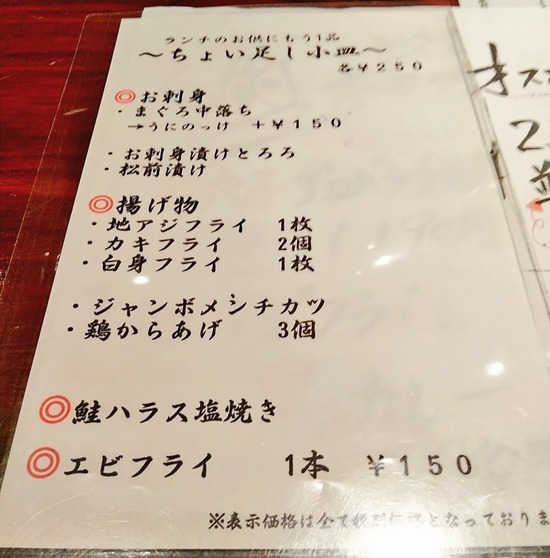 ランチのお供にもう1品
～ちょい足し小皿～
各￥250
◎お刺身
・まぐろ中落ち
→うにのっけ ＋￥150
・お刺身漬けとろろ
・松前漬け
◎揚げ物
・地アジフライ 1枚
・カキフライ 2個
・白身フライ 1枚
・ジャンボメンチカツ
・鶏からあげ 3個
◎鮭ハラス塩焼き
◎エビフライ 1本 ￥150
※表示価格は全て となっておりま
オス
2